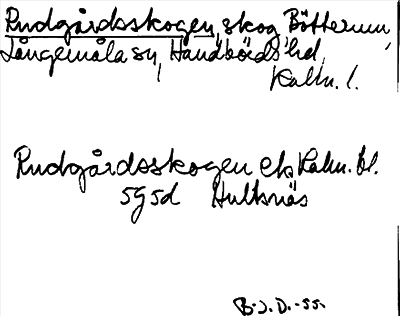 Rudgårdsskogen, skog Bötterum,
Långemåla sn, Handbörds hd,
Kalm. l.
Rudgårdsskogen ek Kalm. bl.
5g5d Hultsnäs
B.J.D.-55.